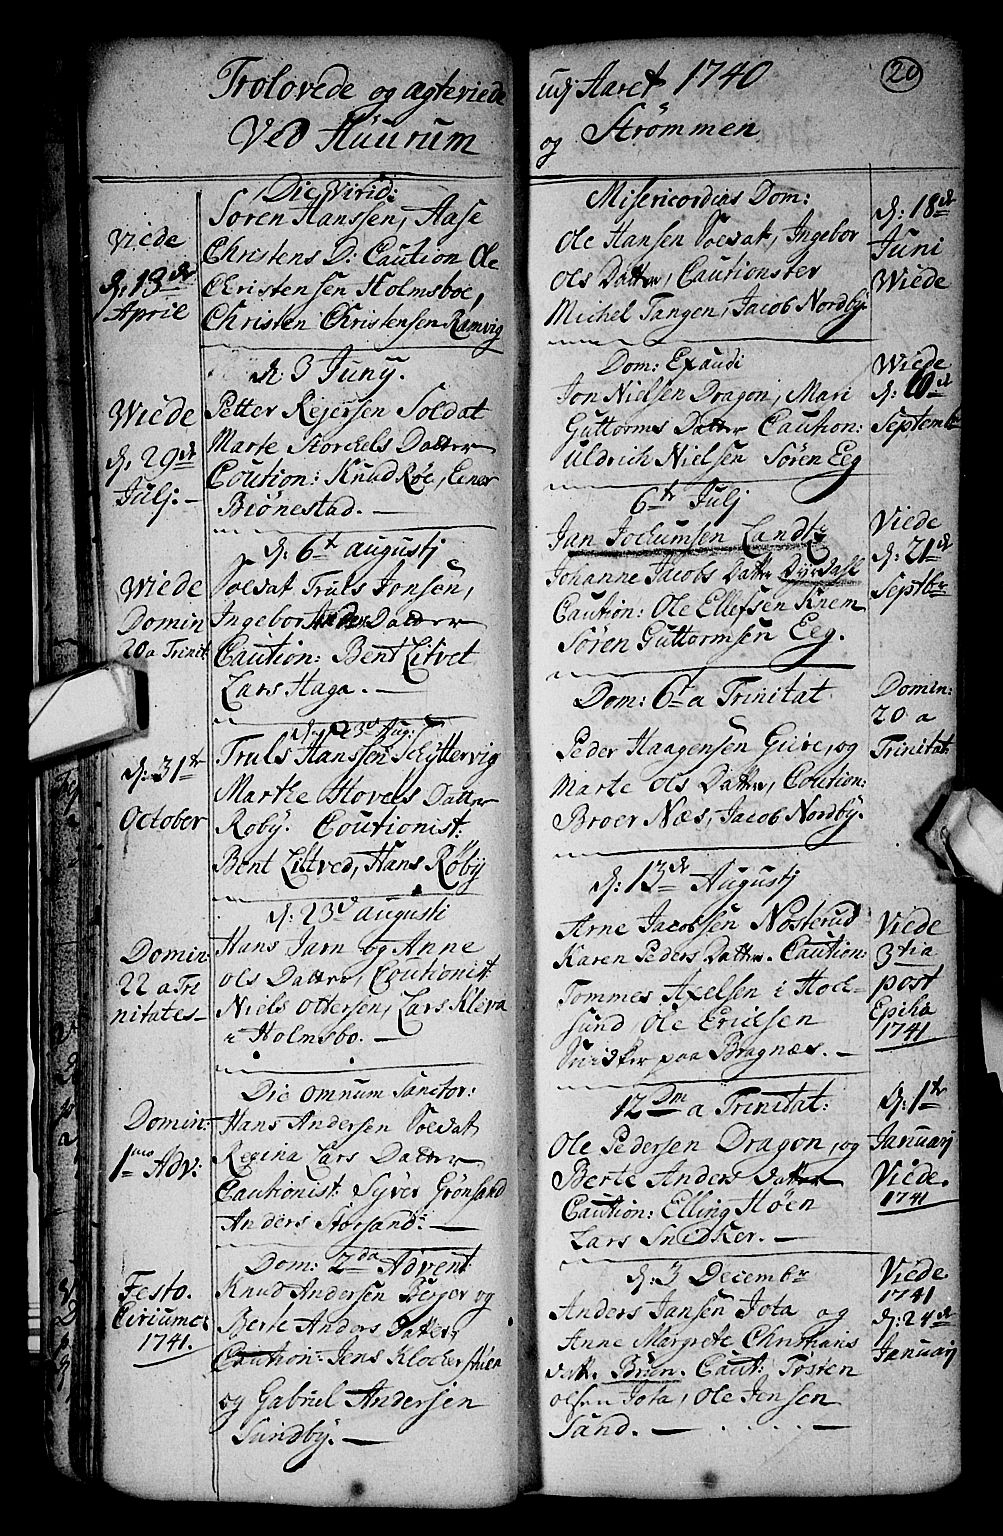 Trolovede og agteviede
Ved Huurum
Die Virid:
Viede
d: 13de
April
Søren Hanssen, Aase
Christens D: Caution Ole
Christensen Holmsboe,
Christen Christensen Ramvig
d: 3 Junij.
Wiede
d: 29de
Julj: –
Petter Rejersen Soldat
Marte Storckels Datter
Coution: Knud Röe, Einer
Biönestad. –
d: 6t augustj
Wiede
Domin
20 a Trinit
Soldat Truls Jonsen,
Ingebor Datter
Caution: Bent Litvet
Lars Haga. –
d: 23d Aug:
d: 31te
October
Truls Hanssen Schyttervig
Marthe Hovels Datter
Roby. Coutionist:
Bent Littved, Hans Röby
d: 23d augusti
Domin:
22 a Tri
nitates –
Hans Jarn og Anne
Ols Datter, Coutionist
Niels Ottersen, Lars Kleva
i Holmsbo. –
Die omnum Sanctor:
Domin:
1mo Adv:
Hans Andersen Soldat
Regina Lars Datter
Cautionist: Syver Grönsand
Anders Storsand: –
Dom: 2da Advent
Festo.
Circumc:
1741.
Knud Andersen Berger og
Berte Anders Datter,
Caution: Jens Klocker
og Gabriel Andersen
Sundby. –
udj Aaret 1740
20
og Strømmen
Misericordias Dom:
Ole Hansen Soldat, Ingebor
Ols Datter, Cautionster
Michel Tangen, Jacob Nordby.
d: 18de
Juni
Wiede
Dom: Exaudi
Jon Nielsen Dragon, Mari
Guttorms Datter Caution:
Uldrich Nielsen Sören Eeg
Wiede
d:
Septemb
6te Julj
Jan Jochumsen Landt
Johanne Jacobs Datter Dyrdahl
Caution: Ole Ellefsen Knem
Sören Guttormsen Eeg.
Viede
d: 21de
Septbr
Dom: 6ta Trinitat
Peder Haagensen Guire, og
Marte Ols Datter, Coution:
Broer Næs, Jacob Nordby.
Domin:
20 a
Trinitat
d: 13de Augustj
Arne Jacobsen Nosterud
Karen Peders Datter. Caution:
Tommes Axelsen i Hoch-
sund Ole Ericksen
Snidker paa Bragnæs. –
Viede
3tia
post
Epiha
1741
12 Dm a Trinitat:
Ole Pedersen Dragon, og
Berte Anders Datter
Caution: Elling Høen
Lars Snidker. –
d: 1te
Januarj
Viede.
1741
d: 3 Decembr
Anders Jansen Jota og
Anne Margrete Christians
datt. Brun. Caut: Tosten
olsen Jota, Ole Jensen
Sand. –
Viede
1741
d: 24de
Januarj